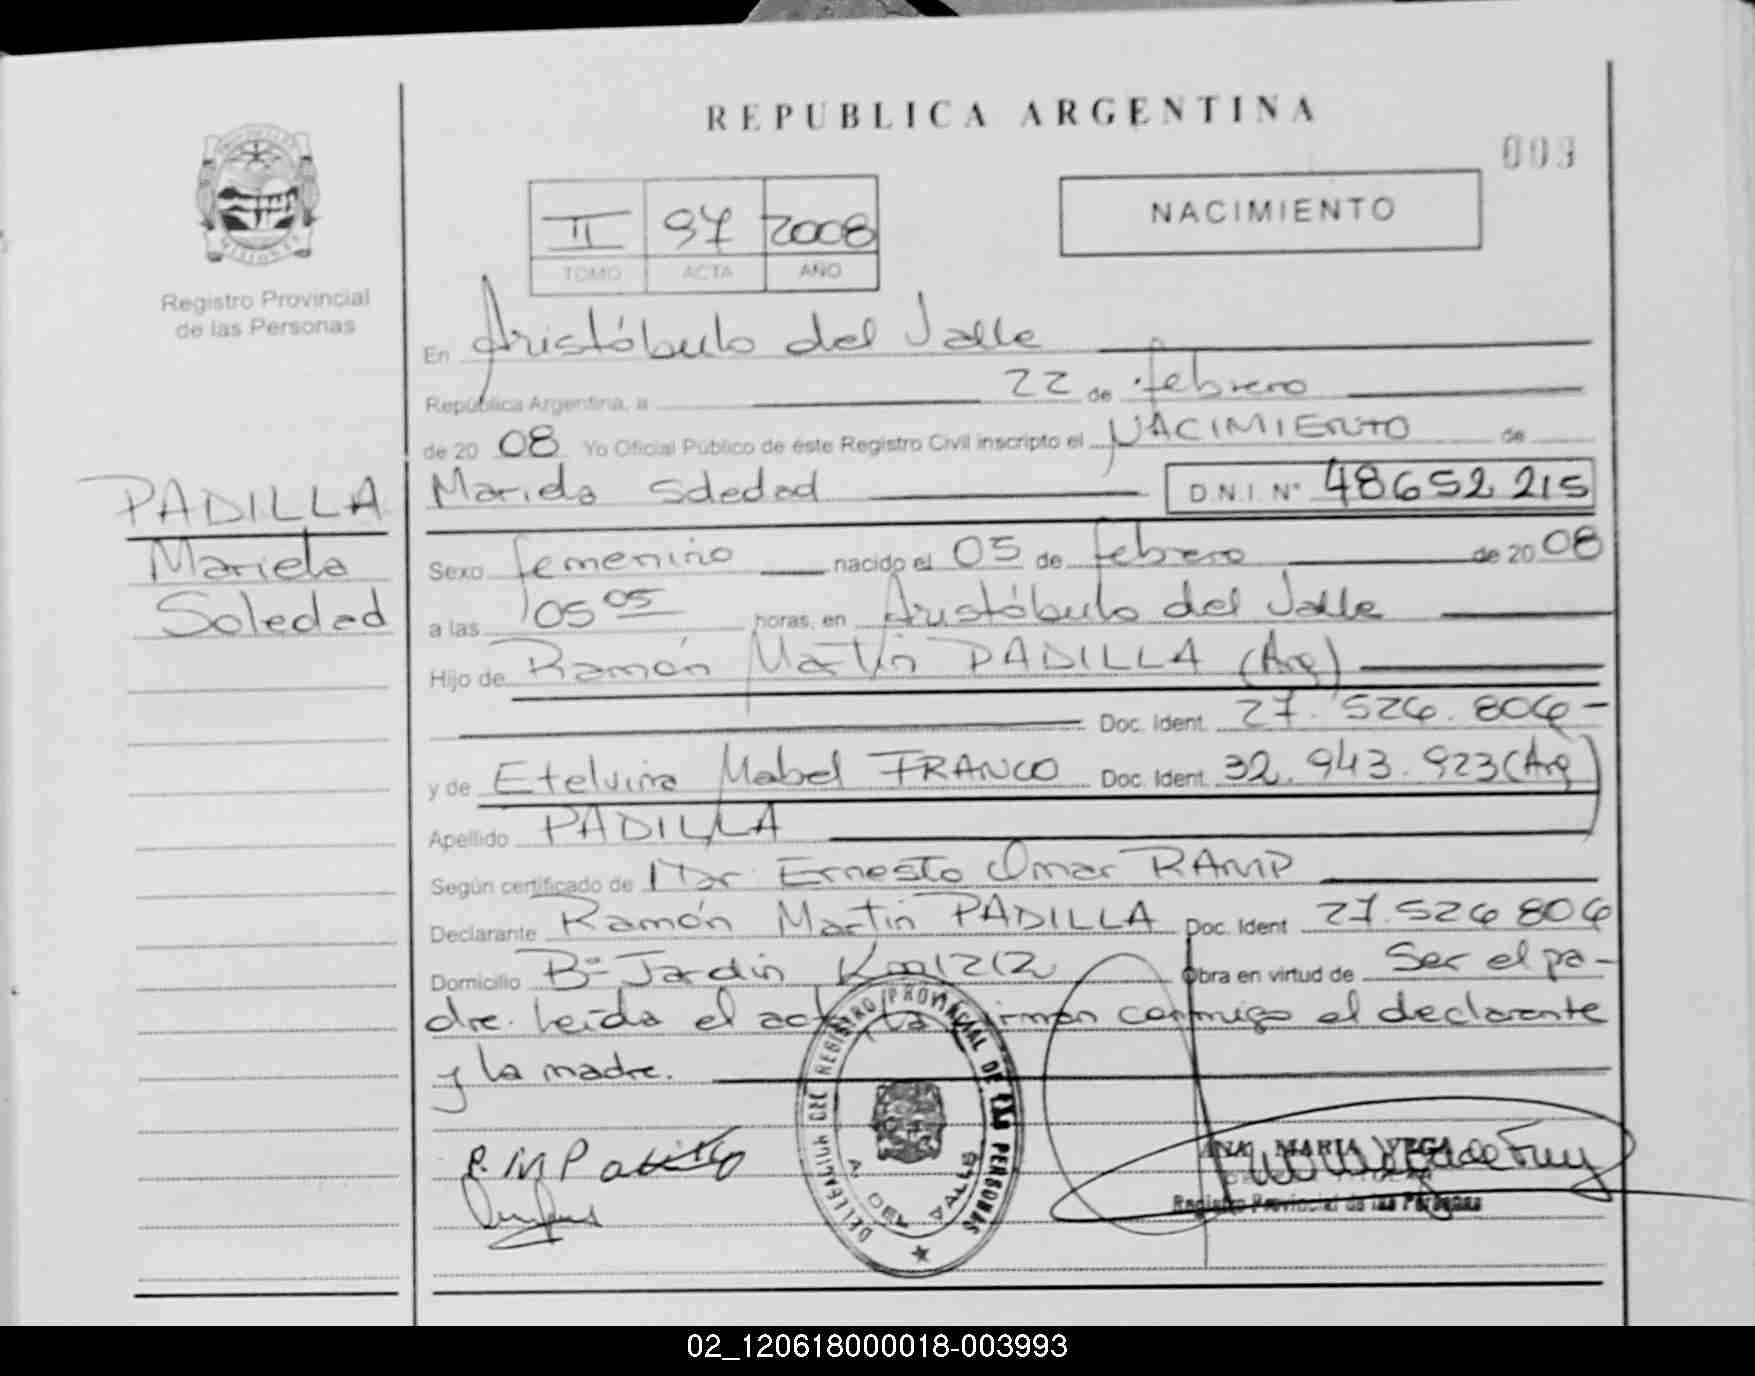 REPUBLICA ARGENTINA
003
II 97 2008
TOMO ACTA AÑO
NACIMIENTO
Registro Provincial
de las Personas
En Aristóbulo del Valle
República Argentina, a 22 de febrero
de 20 08 Yo Oficial Público de éste Registro Civil inscripto el NACIMIENTO de
Mariela Soledad D.N.I. N° 48652215
PADILLA
Mariela
Soledad
Sexo femenino nacido el 05 de febrero de 20 08
a las 05 05 horas, en Aristóbulo del Valle
Hijo de Ramón Martín PADILLA (Arg)
Doc. Ident. 27.526.806-
y de Etelvina Mabel FRANCO Doc. Ident. 32.943.923 (Arg)
Apellido PADILLA
Según certificado de Dr. Ernesto Omar RAMP
Declarante Ramón Martín PADILLA Doc. Ident 27.526 806
Domicilio B° Jardín Km 1212 Obra en virtud de Ser el pa-
dre. Leída el acta firman conmigo el declarante
y la madre.
R.M Padilla
REGISTRO PROVINCIAL DE LAS PERSONAS
A. DEL VALLE
ANA MARIA VEGA de
Registro Provincial de las Personas
02_120618000018-003993